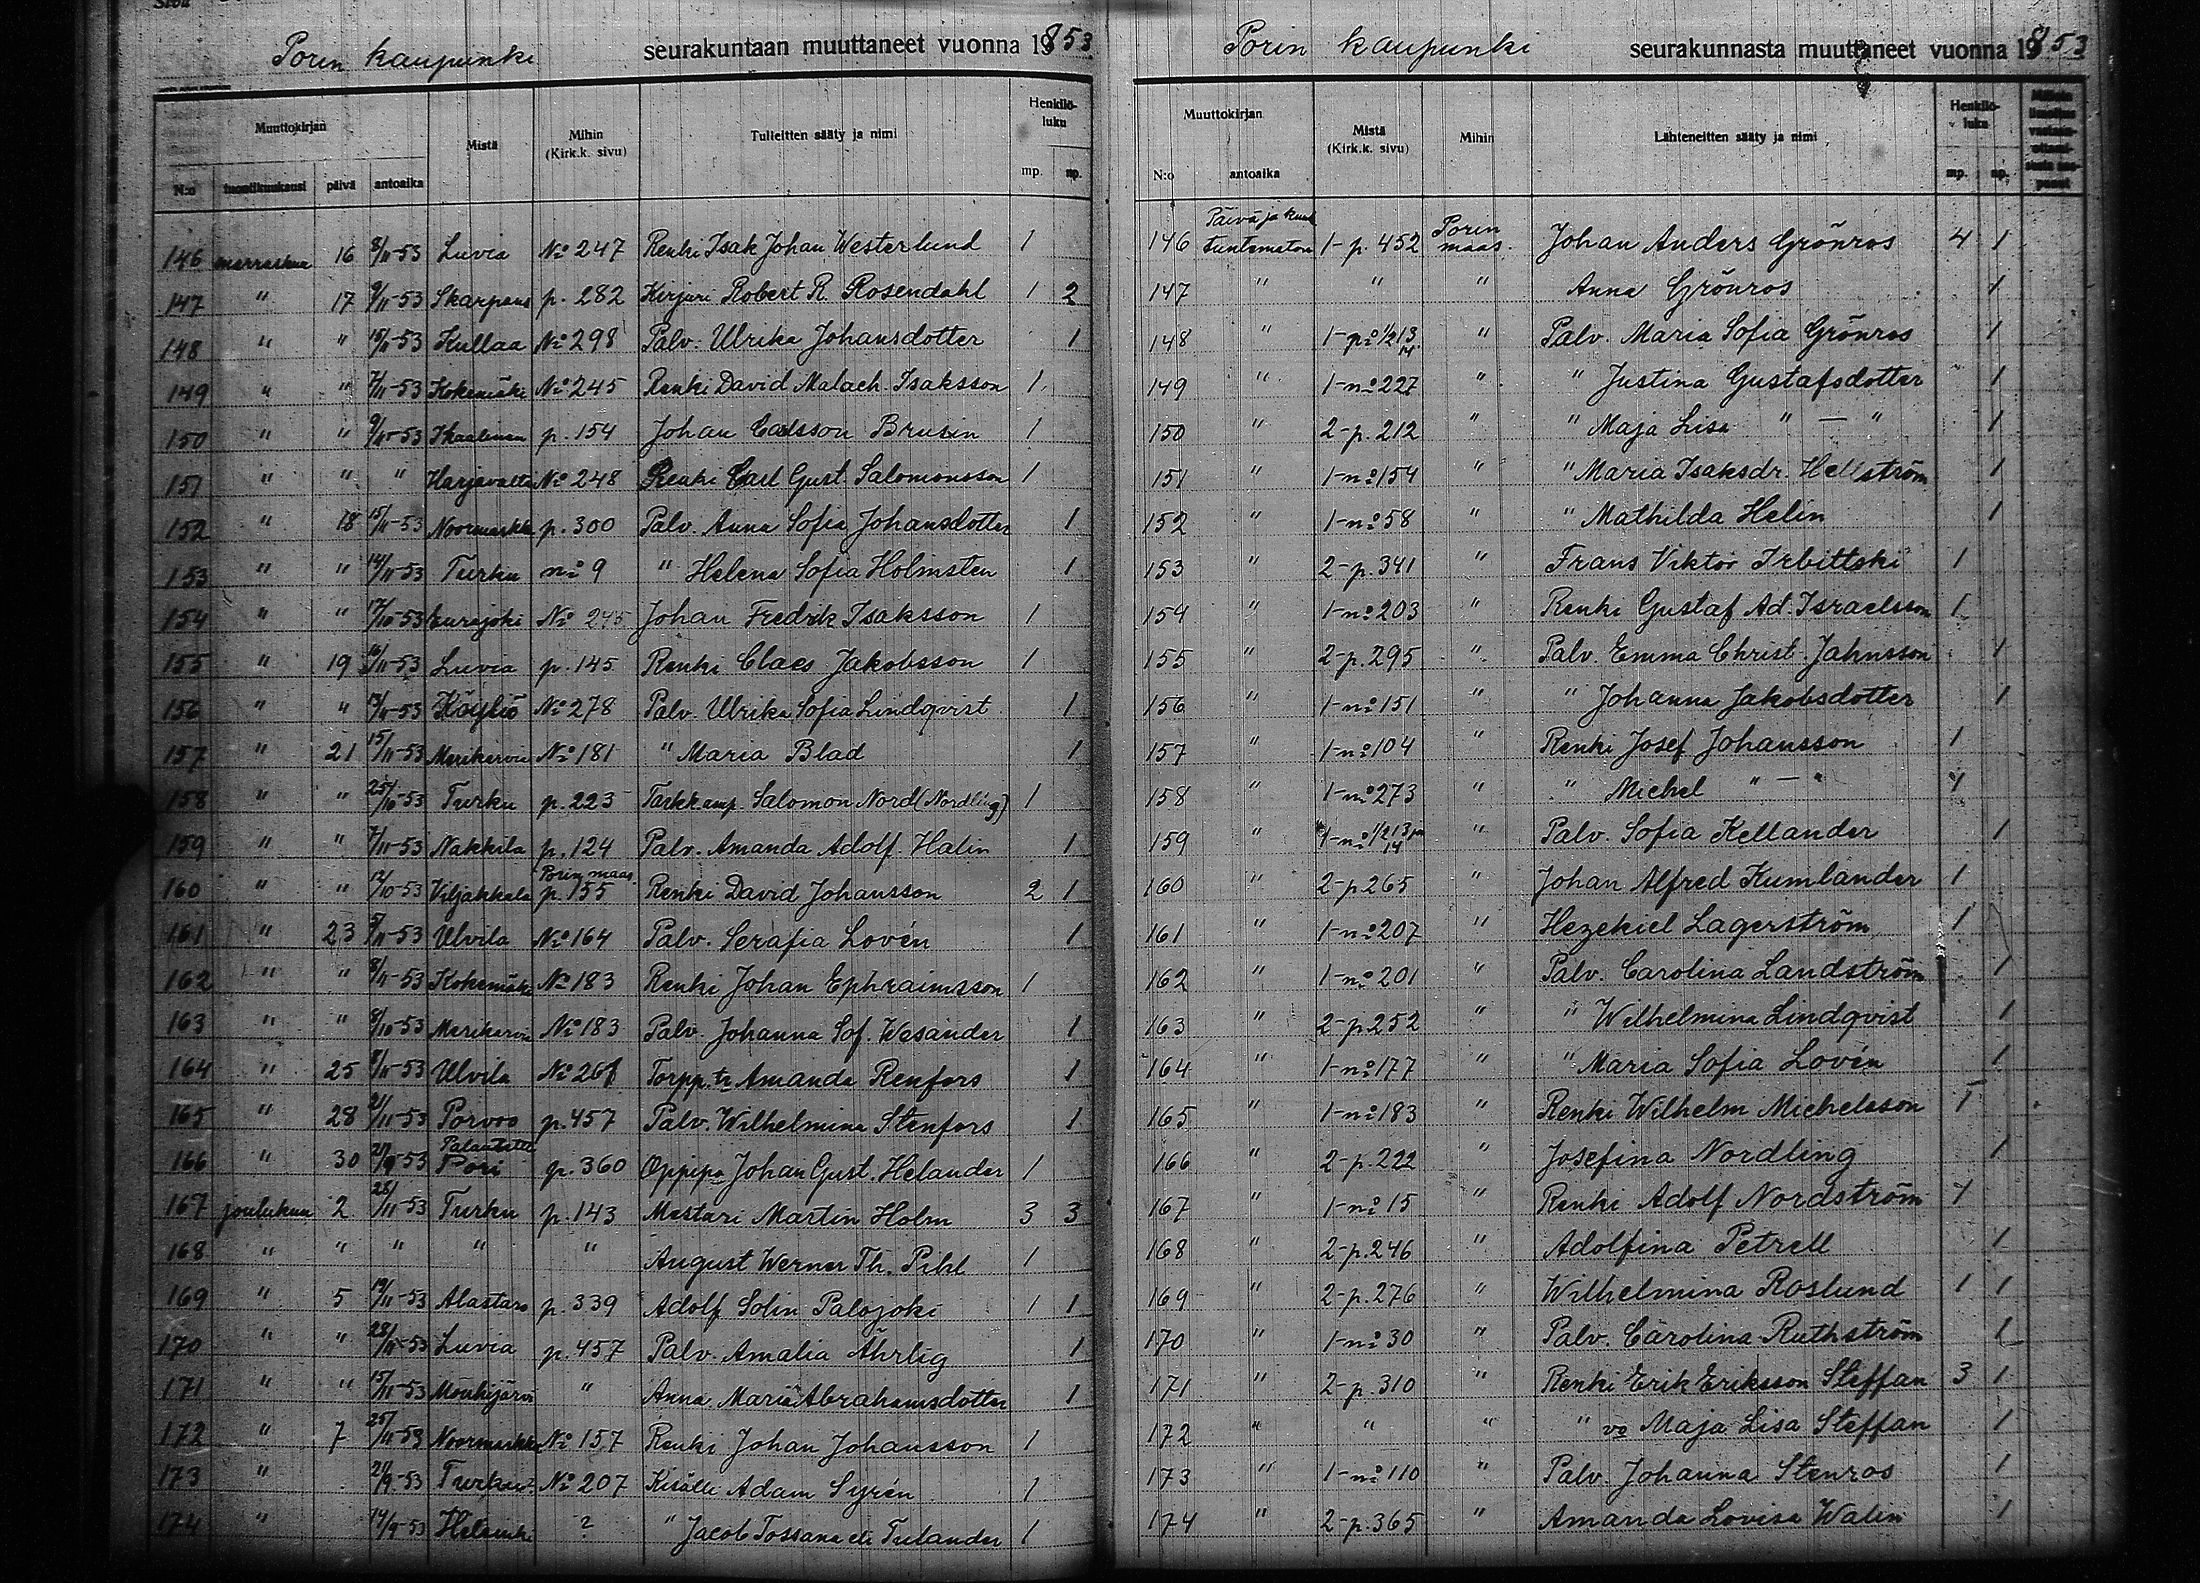 Porin kaupunki seurakuntaan muuttaneet vuonna 1853
Muuttokirjan Mistä Mihin (Kirk.k. sivu) Tulleitten sääty ja nimi Henkilö-luku
N:o tuontikuukausi päivä antoaika mp. np.
146 marraskuu 16 8/11-53 Luvia No 247 Renki Isak Johan Westerlund 1
147 " 17 9/11-53 p. 282 Kirjuri Robert R. Rosendahl 1 2
148 " " 10/11-53 Kullaa No 298 Palv. Ulrika Johansdotter 1
149 " " 7/11-53 Kokemäki No 245 Renki David Malach. Isaksson 1
150 " " Ikaalinen p. 154 Johan Carlsson Brusin 1
151 " " " Harjavalta No 248 Renki Carl Gust. Salomonsson 1
152 " 18 15/11-53 Noormarkku p. 300 Palv. Anna Sofia Johansdotter 1
153 " " 14/11-53 Turku no 9 " Helena Sofia Holmsten 1
154 " " 17/10-53 Eurajoki No 245 Johan Fredrik Isaksson 1
155 " 19 16/11-53 Luvia p. 145 Renki Claes Jakobsson 1
156 " " 13/11-53 Köyliö No 278 Palv. Ulrika Sofia Lindqvist 1
157 " 21 15/11-53 Merikarvia No 181 " Maria Blad 1
158 " " 25/10-53 Turku p. 223 Tarkk.amp. Salomon Nord (Nordling) 1
159 " " 7/11-53 Nakkila p. 124 Palv. Amanda Adolf. Halin 1
160 " " 12/10-53 Viljakkala Porin maas. p. 155 Renki David Johansson 2 1
161 " 23 5/11-53 Ulvila No 164 Palv. Serafia Lovén 1
162 " " 8/11-53 Kokemäki No 183 Renki Johan Ephraimsson 1
163 " " 8/10-53 Merikarvia No 183 Palv. Johanna Sof. Wesander 1
164 " 25 8/11-53 Ulvila No 261 Torpp. tr Amanda Renfors 1
165 " 28 21/11-53 Porvoo p. 457 Palv. Wilhelmina Stenfors 1
166 " 30 27/9-53 Pori p. 360 Oppipo. Johan Gust. Helander 1
167 joulukuu 2 28/11-53 Turku p. 143 Mestari Martin Holm 3 3
168 " " " " " August Werner Th. Pihl 1
169 " 5 19/11-53 Alastaro p. 339 Adolf Solin Palojoki 1 1
170 " " 28/11-53 Luvia p. 457 Palv. Amalia Ährlig 1
171 " " 15/11-53 Mouhijärvi " Anna Maria Abrahamsdotter 1
172 " 7 25/11-53 Noormarkku No 157 Renki Johan Johansson 1
173 " 21/9-53 Turku No 207 Kisälli Adam Syrén 1
174 " 14/9-53 Helsinki ? " Jacob Tossana eli Tulander 1
Porin kaupunki seurakunnasta muuttaneet vuonna 1853
Muuttokirjan Mistä (Kirk.k. sivu) Mihin Lähteneitten sääty ja nimi Henkilö-luku
N:o antoaika mp. np.
146 Päivä ja kuuk. tuntematon 1-p. 452 Porin maas. Johan Anders Grönros 4 1
147 " " " Anna Grönros 1
148 " 1-p. no 1/2 13 14 " Palv. Maria Sofia Grönros 1
149 " 1-no 227 " " Justina Gustafsdotter 1
150 " 2-p. 212 " " Maja Lisa " — " 1
151 " 1-no 154 " " Maria Isaksdr. Hellström 1
152 " 1-no 58 " " Mathilda Helin 1
153 " 2-p. 341 " Frans Viktor Irbittski 1
154 " 1-no 203 " Renki Gustaf Ad. Israelsson 1
155 " 2-p. 295 " Palv. Emma Christ. Jahnsson 1
156 " 1-no 151 " " Johanna Jakobsdotter 1
157 " 1-no 104 " Renki Josef Johansson 1
158 " 1-no 273 " " Michel " — " 1
159 " 1-no 1/2 13 14 " Palv. Sofia Kellander 1
160 " 2-p. 265 " Johan Alfred Kumlander 1
161 " 1-no 207 " Hezekiel Lagerström 1
162 " 1-no 201 " Palv. Carolina Landström 1
163 " 2-p. 252 " " Wilhelmina Lindqvist 1
164 " 1-no 177 " " Maria Sofia Lovén 1
165 " 1-no 183 " Renki Wilhelm Michelsson 1
166 " 2-p. 222 " Josefina Nordling 1
167 " 1-no 15 " Renki Adolf Nordström 1
168 " 2-p. 246 " Adolfina Petrell 1
169 " 2-p. 276 " Wilhelmina Roslund 1 1
170 " 1-no 30 " Palv. Carolina Ruthström 1
171 " 2-p. 310 " Renki Erik Eriksson Steffan 3 1
172 " " " " vo Maja Lisa Steffan 1
173 " 1-no 110 " Palv. Johanna Stenros 1
174 " 2-p. 365 " Amanda Lovisa Walin 1